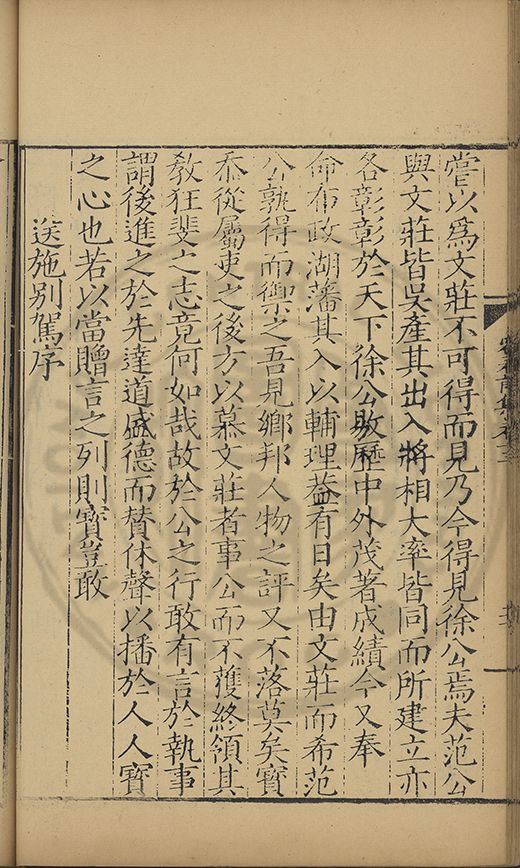 嘗以爲文莊不可得而見乃今得見徐公焉夫范公
與文莊皆吳產其出入將相大率皆同而所建立亦
各彰彰於天下徐公敭歷中外茂著成績今又奉
命布政湖藩其入以輔理葢有日矣由文莊而希范
公孰得而禦之吾見鄉邦人物之評又不落莫矣寳
忝從屬吏之後方以慕文莊者事公而不獲終領其
敎狂斐之志竟何如哉故於公之行敢有言於執事
謂後進之於先達道盛德而賛休聲以播於人人寳
之心也若以當贈言之列則寳豈敢
送施别駕序